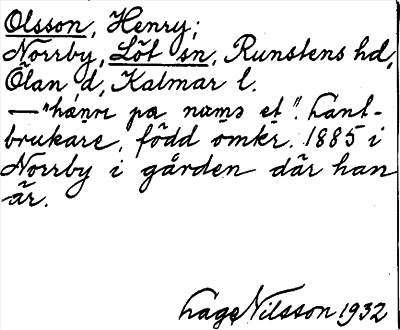 Olsson, Henry;
Norrby, Löt sn, Runstens hd,
Ölan d, Kalmar l.
— "hánn pa namə et". Lant-
brukare, född omkr. 1885 i
Norrby i gården där han
är.
Lage Nilsson 1932